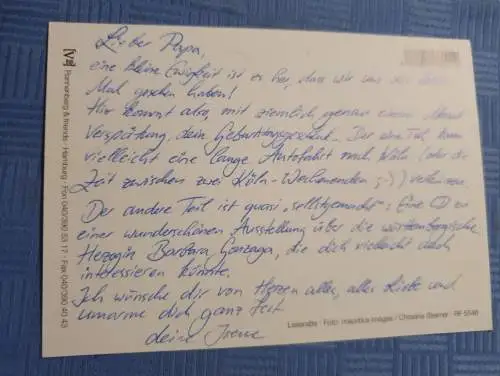 Lieber Papa,
eine kleine Ewigkeit ist es her, dass wir uns
Mal gesehen haben!
Hier kommt also, mit ziemlich genau einem Monat
Verspätung, dein Geburtstagsgeschenk. Der eine Teil kann
vielleicht eine lange Autofahrt nach Köln (oder die
Zeit zwischen zwei Köln-Wochenenden ;-))
Der andere Teil ist quasi „selbstgemacht“: Eine CD zu
einer wunderschönen Ausstellung über die württembergische
Herzogin Barbara Gonzaga, die dich vielleicht doch
interessieren könnte.
Ich wünsche dir von Herzen alles, alles Liebe und
umarme dich ganz fest.
deine Irene
Rannenberg & friends · Hamburg · Fon 040/390 53 17 · Fax 040/390 40 43
Foto: mauritius images / Christine Steimer · RF 5546